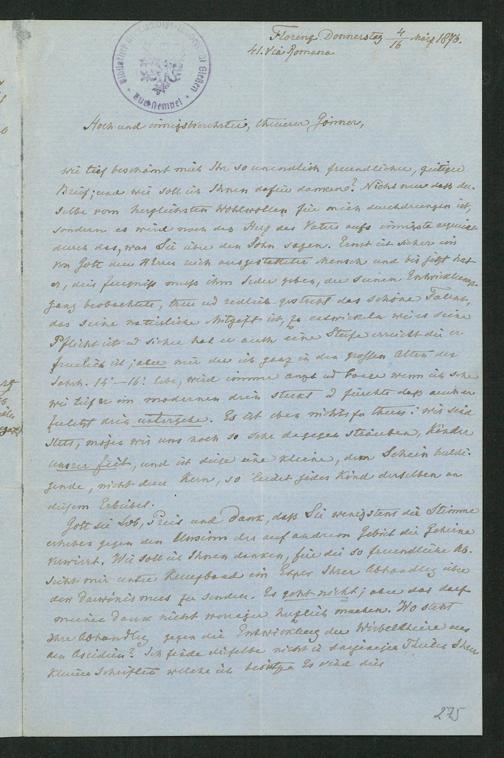 Florenz Donnerstag 4/16 März 1873.
41. Via Romana
Hoch und innigstverehrter, theurer Gönner,
wie tief beschämt mich Ihr so unendlich freundlicher, gütiger
Brief; und wie soll ich Ihnen dafür danken? Nicht nur daß der-
selbe vom herzlichsten Wohlwollen für mich durchdrungen ist,
sondern es wird auch das Herz des Vaters aufs innigste erquickt
durch das, was Sie über den Sohn sagen. Ernst ist sicher ein
von Gott dem Herrn reich ausgestatteter Mensch und bis jetzt hat
er, dies Zeugniß muß ihm Jeder geben, der seinen Entwicklungs-
gang beobachtete, treu und redlich gestrebt das schöne Talent,
das seine natürliche Mitgift ist, zu entwickeln wie es seine
Pflicht ist und sicher hat er auch eine Stufe erreicht die er-
freulich ist; aber mir der ich ganz in den großen Alten des
Jahrh. 14. – 16. lebe, wird immer angst und bange wenn ich sehe
wie tief er im modernen drin steckt und fürchte daß auch er
zuletzt drin untergehe. Es ist eben nichts zu thun; wir sind
stets, mögen wir uns noch so sehr dagegen sträuben, Kinder
unsrer Zeit, und ist diese eine kleine, dem Schein huldi-
gende, nicht dem Kern, so leidet jedes Kind derselben an
diesem Erbübel.
Gott sei Lob, Preis und Dank, daß Sie wenigstens die Stimme
erheben gegen den Unsinn der auf anderem Gebiet die Gehirne
verwirrt. Wie soll ich Ihnen danken, für die so freundliche Ab-
sicht mir unter Kreuzband ein Exper Ihrer Abhandlung über
den Darwinismus zu senden. Es geht nicht; aber das darf
meinen Dank nicht weniger herzlich machen. Wo steht
Ihre Abhandlung gegen die Entwicklung der Wirbelthiere aus
den Ascidien? Ich finde dieselbe nicht in Theile Ihrer
kleinen Schriften welche ich besitze. Es wird dies
275